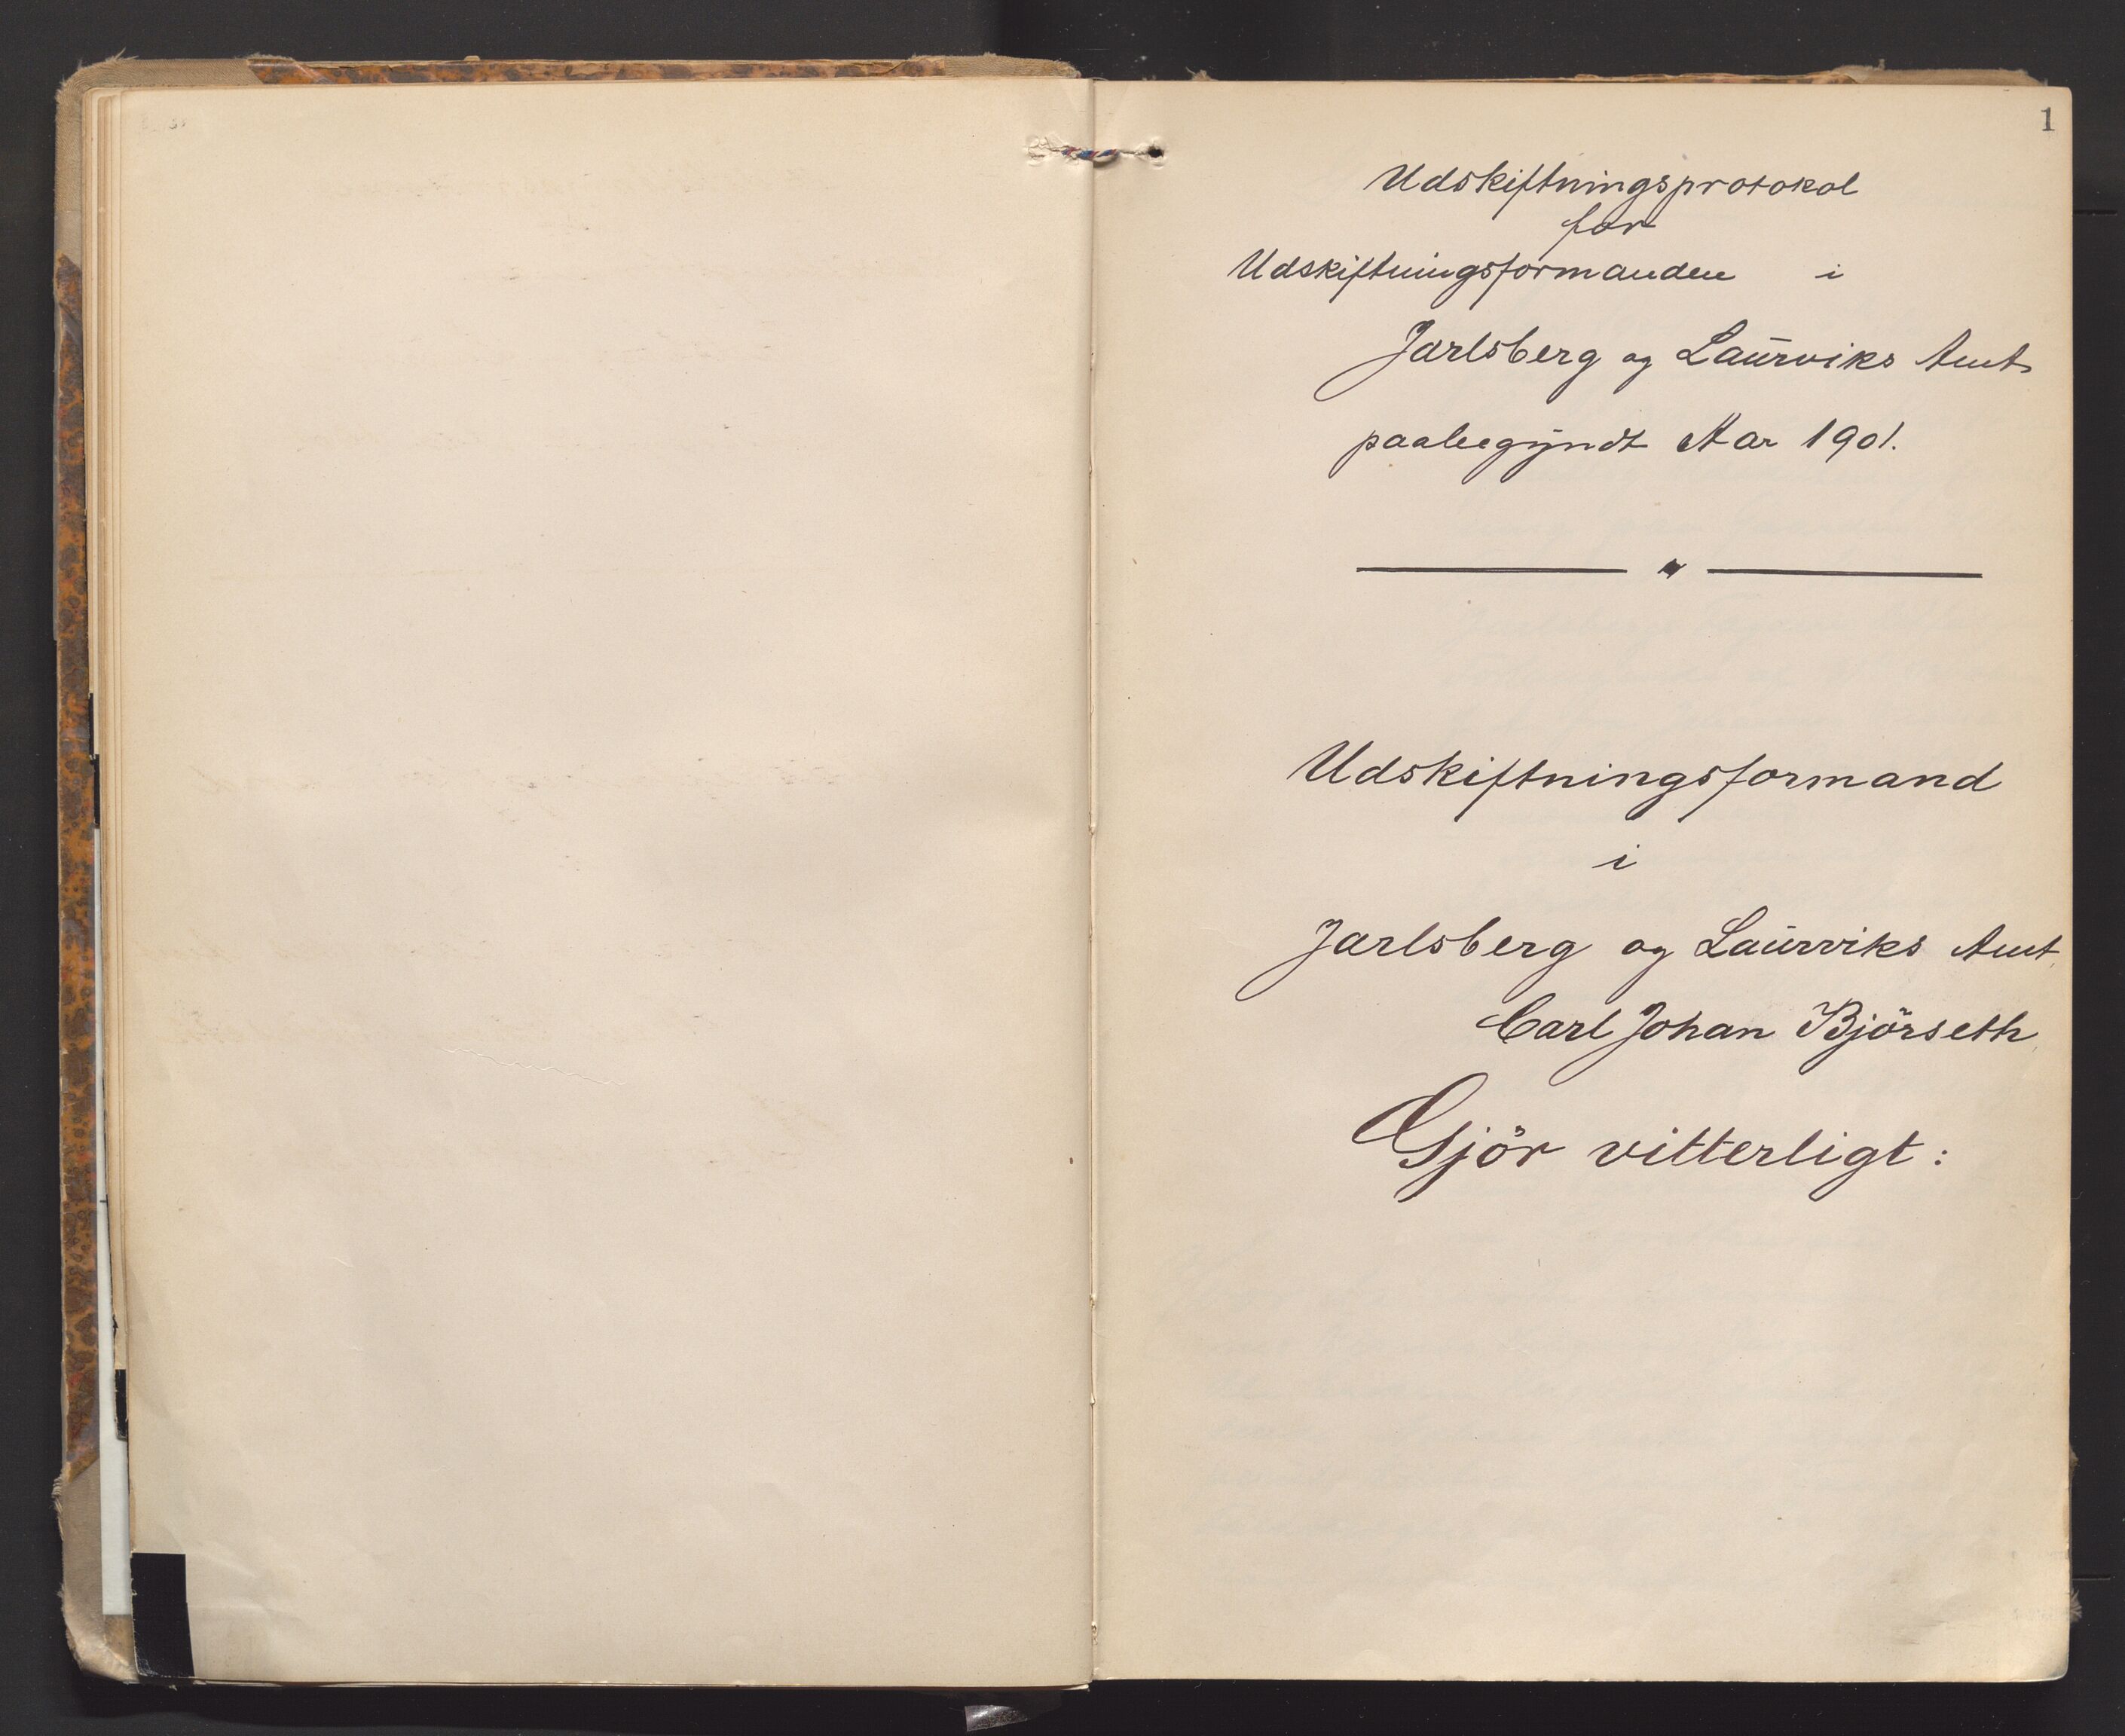 1
Udskiftningsprotokol
for
Udskiftningsformanden i
Jarlsberg og Laŭrviks Amt
paabegyndt Aar 1901.
Udskiftningsformand
i
Jarlsberg og Laŭrviks Amt,
Carl Johan Bjørseth,
Gjör vitterligt: